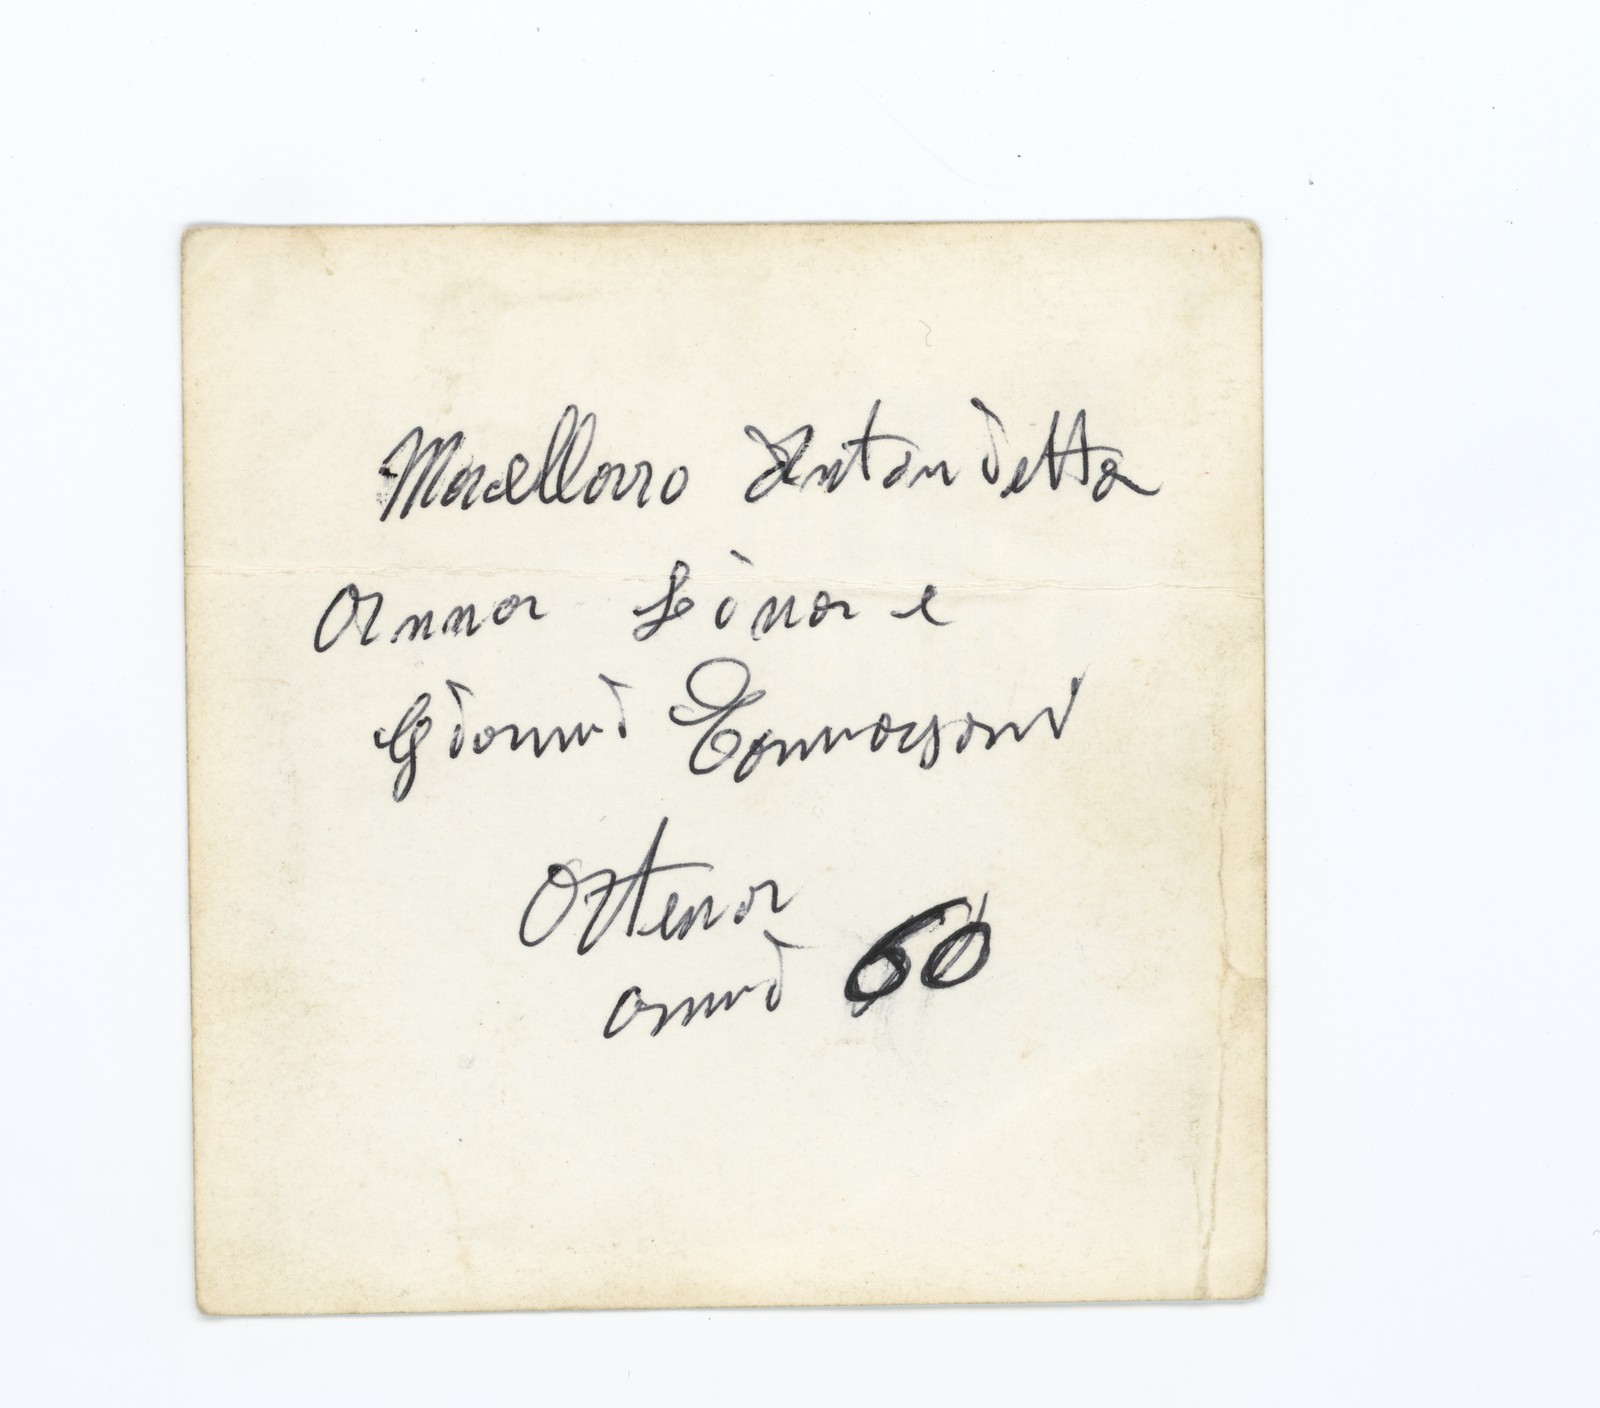 Macellaro Antonietta
Anna Lina e
Gianni Tommasoni
Atena
anni 60